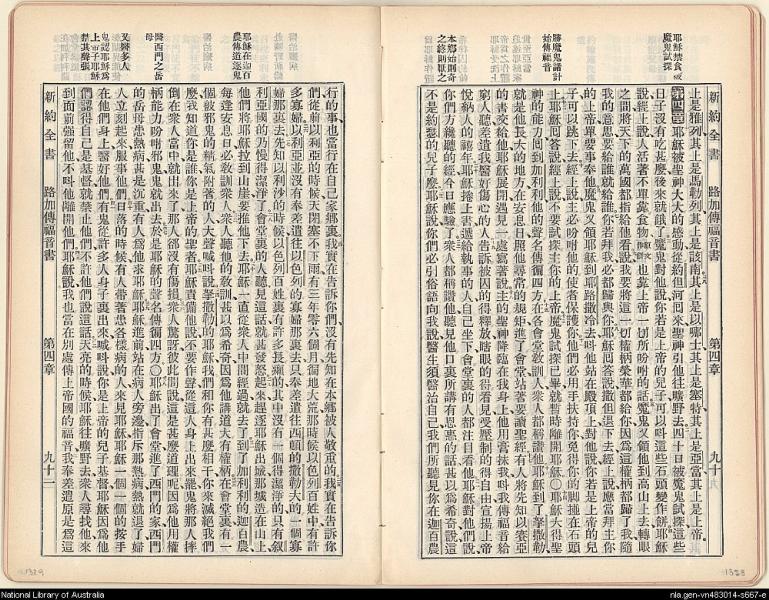 新約全書 路加傳福音書 第四章 九十
耶穌禁食被
魔鬼試探
勝魔鬼諸計
始傳福音
本鄉始則奇
之終則厭之
上是雅列其上是馬勒列其上是該南其上是以挪士其上是塞特其上是亞當其上是上帝
第四章 耶穌被聖神大大的感動從約但河回來聖神引他往曠野去四十日被魔鬼試探這些
日子沒有吃甚麼後來就餓了魔鬼對他說你若是上帝的兒子可以叫這些石頭變作餅耶穌
說經上說人活著不單靠食物也靠上帝一切所吩咐的話魔鬼又領他到高山上去轉眼
之間將天下的萬國都指給他看說我要將這一切權柄榮華都給你因為這權柄都歸了我隨
我的意思要給誰就給誰你若拜我必都歸與你耶穌回答說撒但退下去經上說應當拜主你
的上帝單要事奉他魔鬼又領耶穌到耶路撒冷去叫他站在殿頂上對他說你若是上帝的兒
子可以跳下去經上說主必吩咐他的使者保護你他們必用手扶持你免得你的腳撞在石頭
上耶穌回答說經上說不要試探主你的上帝魔鬼試探已畢就暫時離開耶穌〇耶穌大得聖
神的能力回到加利利他的聲名傳徧四方在各會堂教訓人衆人都稱讚他耶穌到了拿撒勒
就是他長大的地方在安息日照他尋常的規矩進了會堂站著要讀聖經有人將先知以賽亞
的書交給他耶穌展開遇見一處寫著說主的聖神降臨在我身上他用膏抹我叫我傳福音給
窮人差遣我醫好傷心的人告訴被囚的得釋放瞎眼的得看見受壓制的得自由宣揚上帝
悅納人的禧年耶穌捲上書遞給執事的人自己坐下會堂裏的人都注目看他耶穌對他們說
你們方纔聽的經今日應驗了衆人都稱讚他聽見他口裏所講有恩惠的話就以為希奇說這
不是約瑟的兒子麼耶穌說你們必引俗語向我說醫生須醫治自己我們所聽見你在迦百農
新約全書 路加傳福音書 第四章 九十二
耶穌在迦百
農傳道逐鬼
醫西門之岳
母
又醫多人
鬼認耶穌為
上帝子耶穌
禁其聲張
行的事也當行在自己家鄉裏我實在告訴你們沒有先知在本鄉被人敬重的我實在告訴你
們從前以利亞的時候天閉塞不下雨有三年零六個月徧地大荒那時候以色列百姓中有許
多寡婦以利亞並沒有奉差遣往以色列的寡婦那裏去只奉差遣往西頓的撒勒大的一個寡
婦那裏去先知以利沙的時候以色列百姓裏有許多長癩的其中沒有一個得潔淨的只有叙
利亞國的乃慢得潔淨了會堂裏的人聽見這話就甚發怒起來趕逐耶穌出城那城造在山上
他們將耶穌拉到山崖要推他下去耶穌一直從衆人中間經過就去了到了加利利的迦百農
每逢安息日必教訓衆人衆人聽他的教訓甚以為希奇因為他講道大有權柄在會堂裏有一
個被邪鬼的精氣附著的人大聲喊叫說拿撒勒的耶穌我們和你有甚麼相干你來滅絕我們
麼我知道你是誰你是上帝的聖者耶穌責備他說不要作聲從這人身上出來罷鬼將那人摔
倒在衆人當中就出來了那人卻沒有傷損衆人驚訝彼此問說這是甚麼道理呢因為他用權
柄能力吩咐邪鬼鬼就出去於是耶穌的聲名傳徧四方〇耶穌出了會堂進了西門的家西門
的岳母患熱病甚是沉重有人為他求耶穌耶穌進前站在病人旁邊指斥那熱病熱就退了婦
人立刻起來服事他們日落的時候有人帶著患各樣病的人來見耶穌耶穌一個一個的按手
在他們身上醫好他們有鬼從許多人身子裏出來喊叫說你是上帝的兒子基督耶穌因為他
們認得自己是基督就禁止他們不許他們說這話天亮的時候耶穌往曠野去衆人尋找他來
到面前強留他不叫他離開他們耶穌說我也當在別處傳上帝國的福音我奉差遣原是為這
National Library of Australia
nla.gen-vn483014-s667-e